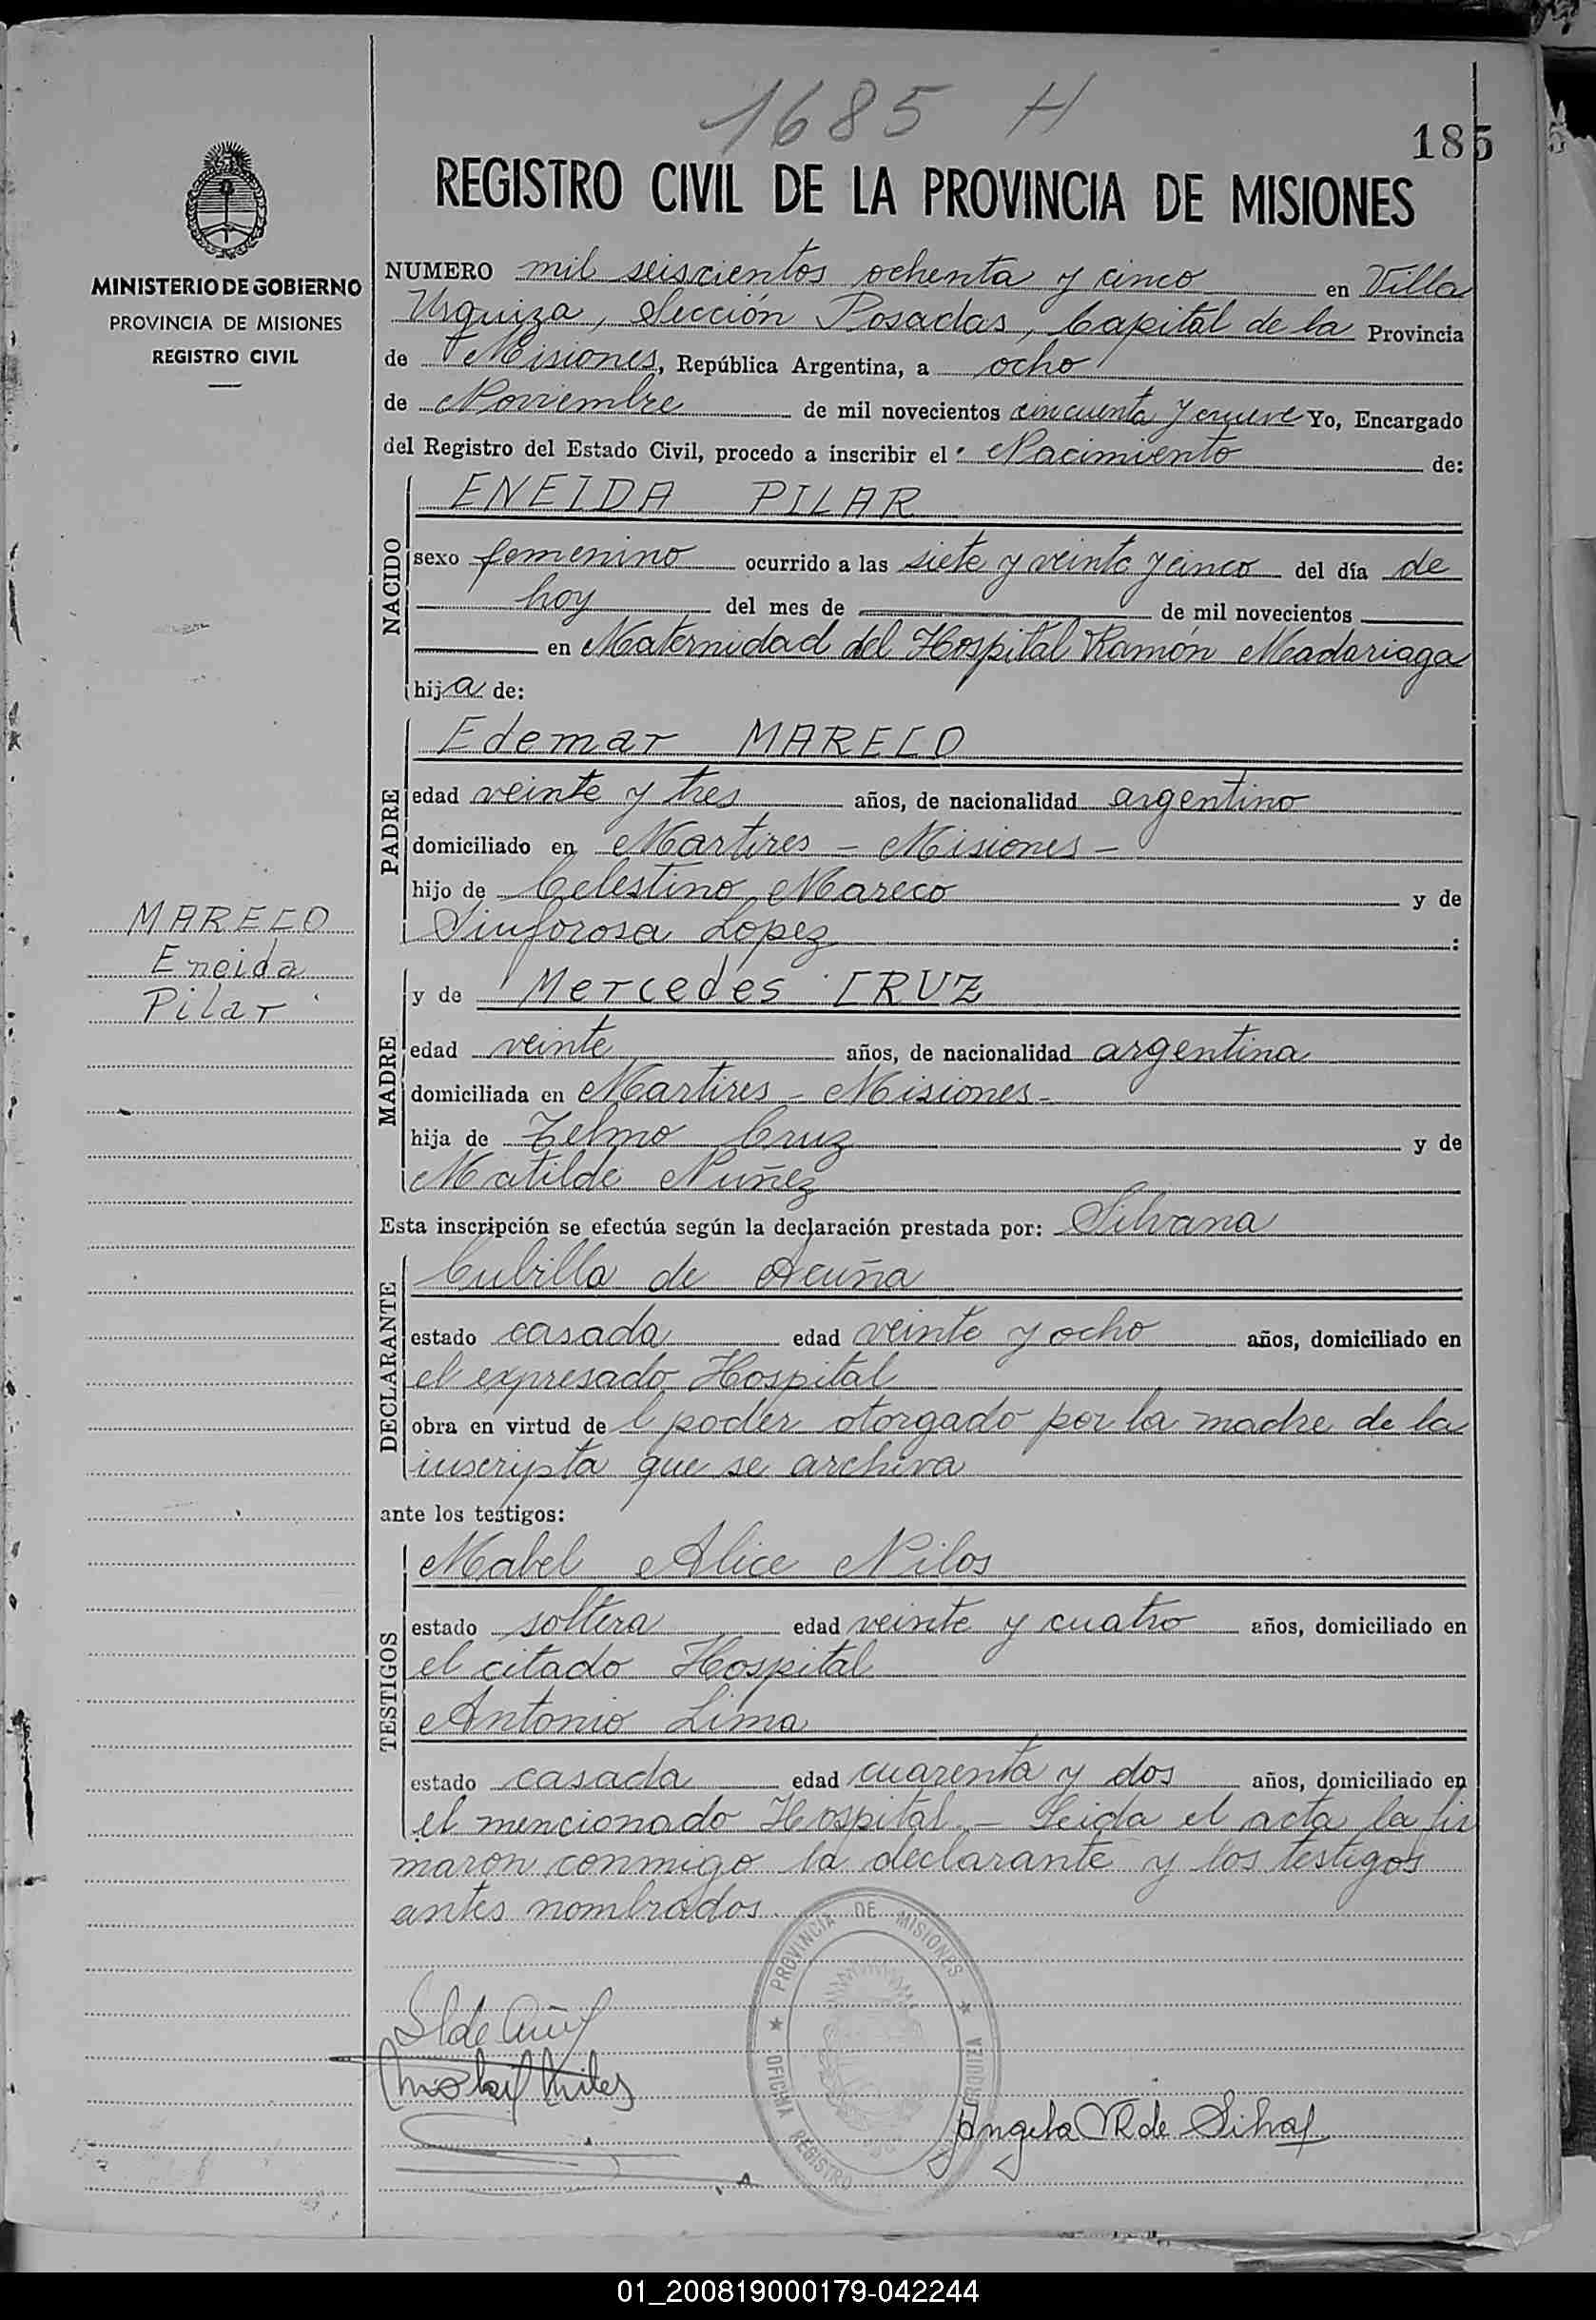 1685 H
185
REGISTRO CIVIL DE LA PROVINCIA DE MISIONES
MINISTERIO DE GOBIERNO
PROVINCIA DE MISIONES
REGISTRO CIVIL
NUMERO mil seiscientos ochenta y cinco en Villa
Urquiza, Sección Posadas, Capital de la Provincia
de Misiones, República Argentina, a ocho
de Noviembre de mil novecientos cincuenta y nueve Yo, Encargado
del Registro del Estado Civil, procedo a inscribir el Nacimiento de:
NACIDO
ENEIDA PILAR
sexo femenino ocurrido a las siete y veinte y cinco del día de
hoy del mes de de mil novecientos
en Maternidad del Hospital Ramón Madariaga
hija de:
PADRE
Edemar MARECO
edad veinte y tres años, de nacionalidad argentino
domiciliado en Martires - Misiones -
hijo de Celestino Mareco y de
Sinforosa Lopez :
MARECO
Eneida
Pilar
MADRE
y de Mercedes CRUZ
edad veinte años, de nacionalidad argentina
domiciliada en Martires - Misiones -
hija de Telmo Cruz y de
Matilde Nuñez
Esta inscripción se efectúa según la declaración prestada por: Silvana
DECLARANTE
Cubilla de Acuña
estado casada edad veinte y ocho años, domiciliado en
el expresado Hospital
obra en virtud de l poder otorgado por la madre de la
inscripta que se archiva
ante los testigos:
TESTIGOS
Mabel Alice Nilos
estado soltera edad veinte y cuatro años, domiciliado en
el citado Hospital
Antonio Lima
estado casada edad cuarenta y dos años, domiciliado en
el mencionado Hospital - Leida el acta la fir
maron conmigo la declarante y los testigos
antes nombrados.
PROVINCIA DE MISIONES
OFICINA REGISTRO URQUIZA
Angela R de Silva
01_200819000179-042244